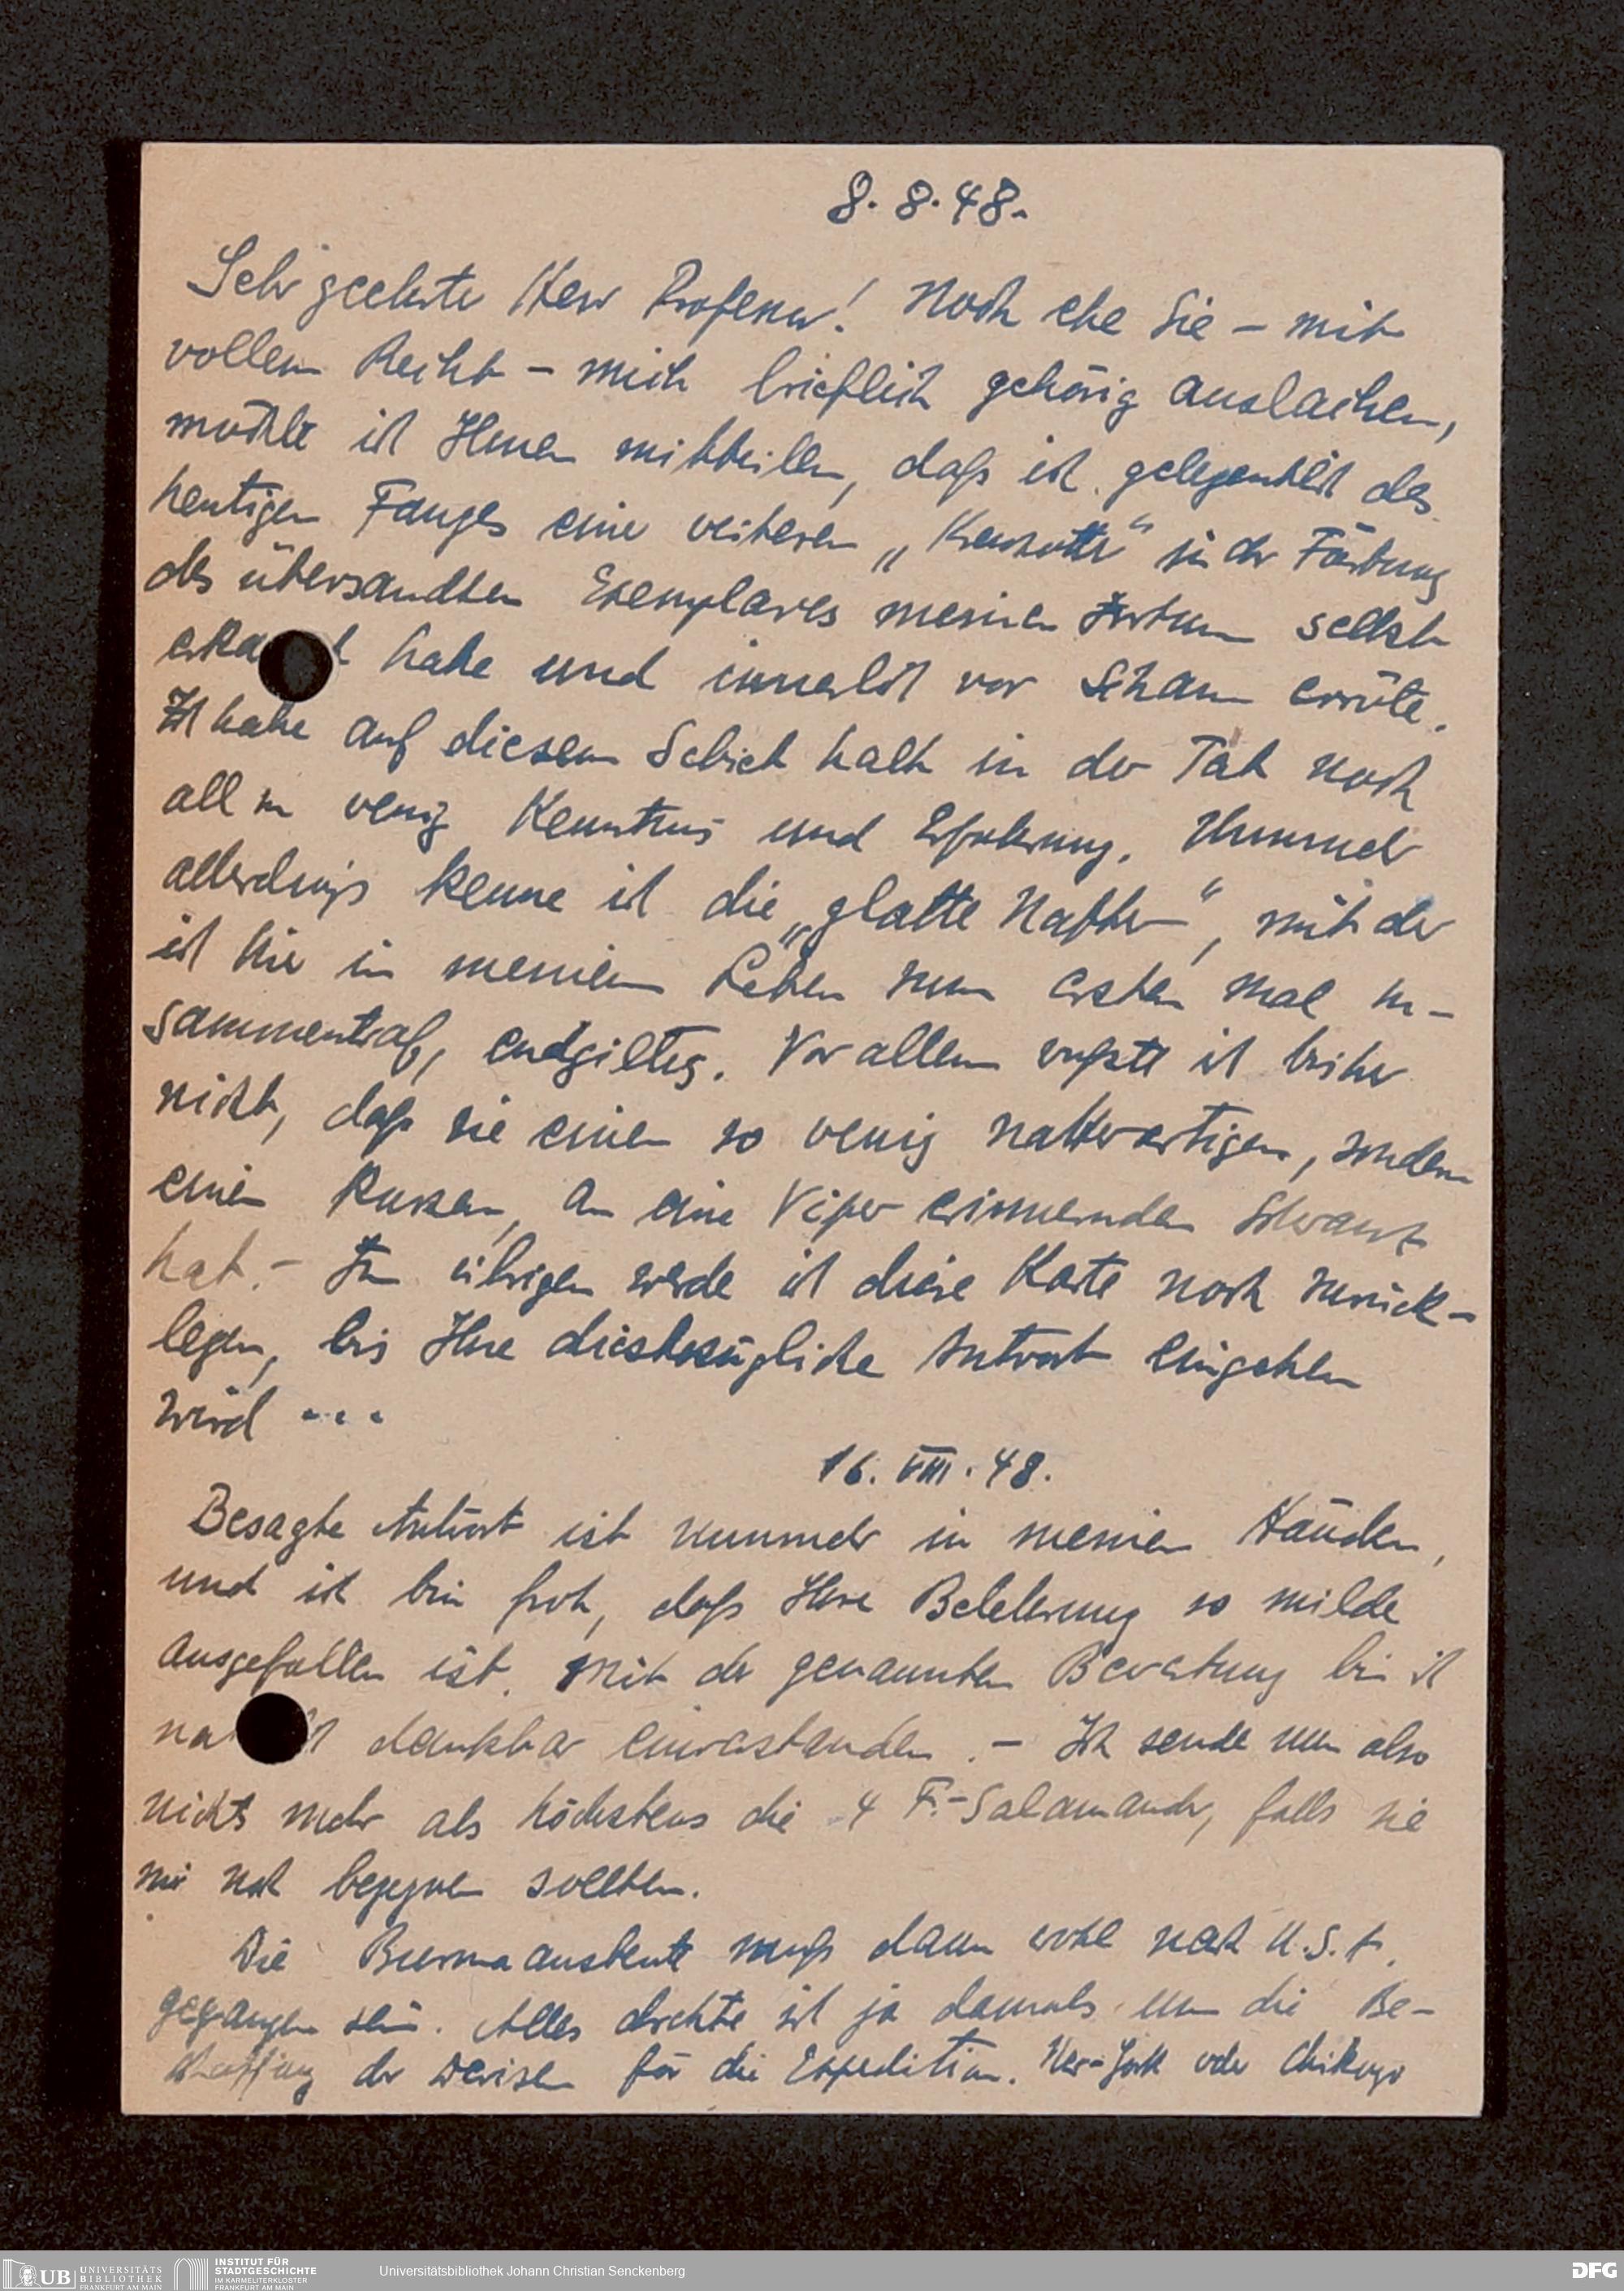 8. 8. 48.
Sehr geehrter Herr Professor! Noch ehe Sie – mit
vollem Recht – mich brieflich gehörig auslachen,
möchte ich Ihnen mitteilen, daß ich gelegentlich des
heutigen Fanges einer weiteren „Kreuzotter“ in der Färbung
des übersandten Exemplares meinen Irrtum selbst
erka t habe und innerlich vor Scham erröte.
Ich habe auf diesem Gebiet halt in der Tat noch
all zu wenig Kenntnis und Erfahrung. Nunmehr
allerdings kenne ich die „glatte Natter“, mit der
ich hier in meinem Leben zum ersten Mal zu-
sammentraf, endgiltig. Vor allem wußte ich bisher
nicht, daß sie einen so wenig natterartigen, sondern
einen kurzen, an eine Viper erinnernden Schwanz
hat. – Im übrigen werde ich diese Karte noch zurück-
legen, bis Ihre diesbezügliche Antwort eingehen
wird ...
16. VIII. 48.
Besagte Antwort ist nunmehr in meinen Händen,
und ich bin froh, daß Ihre Belehrung so milde
ausgefallen ist. Mit der genannten Bewertung bin ich
na ch dankbar einverstanden. – Ich sende nun also
nichts mehr als höchstens die 4 F.-Salamander, falls sie
mir noch begegnen sollten.
Die Burmaausbeute muß dann wohl nach U.S.A.
gegangen sein. Alles drehte sich ja damals um die Be-
schaffung der Devisen für die Expedition. New-York oder Chikago
UB UNIVERSITÄTS
BIBLIOTHEK
FRANKFURT AM MAIN
INSTITUT FÜR
STADTGESCHICHTE
IM KARMELITERKLOSTER
FRANKFURT AM MAIN
Universitätsbibliothek Johann Christian Senckenberg
DFG